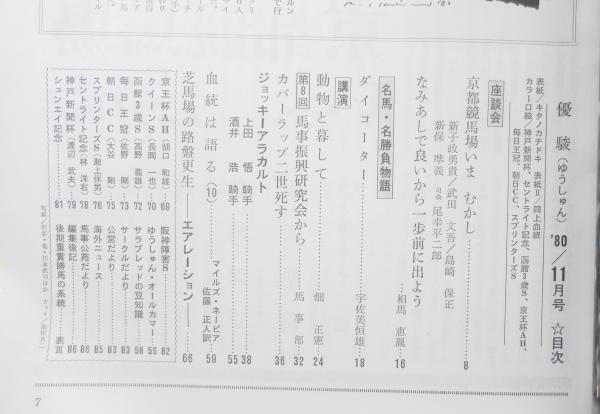 優駿(ゆうしゅん)'80/11月号 ☆目次
表紙/キタノカチドキ 表紙Ⅱ/同上血統
カラー口絵/神戸新聞杯、セントライト記念、函館3歳S、京王杯AH、
毎日王冠、朝日CC、スプリンターズS
座談会
京都競馬場いま むかし 8
新子政勇貴/武田 文吾/島崎 保正
新保 準義 司会 尾幸平二郎
なみあしで良いから一歩前に出よう 相馬 恵胤 16
名馬・名勝負物語
ダイコーター 宇佐美恒雄 18
講演
動物と暮して 畑 正憲 24
第8回 馬事振興研究会から 馬事部 32
カバーラップ二世死す 36
ジョッキーアラカルト
上田 悟 騎手 38
酒井 浩 騎手 55
血統は語る(10) マイルズ・ネーピア
佐藤 正人訳 59
芝馬場の路盤更生 エアレーション 66
京王杯AH(胡口 和雄) 69
クイーンS(長岡 一也) 70
函館3歳S(高野 義雄) 72
毎日王冠(佐野 剛) 73
朝日CC(大谷 剛) 75
スプリンターズS(瀬上保男) 76
セントライト記念(林 洋右) 78
神戸新聞杯(渡辺 武夫) 79
シュンエイ記念 81
阪神障害S 82
ゆうしゅん・オールカマー 56
サラブレッドの豆知識 58
サークルだより 83
公営だより 83
海外ニュース 85
馬事公苑だより 86
編集後記 86
後期重賞勝馬の系統 表Ⅲ
7